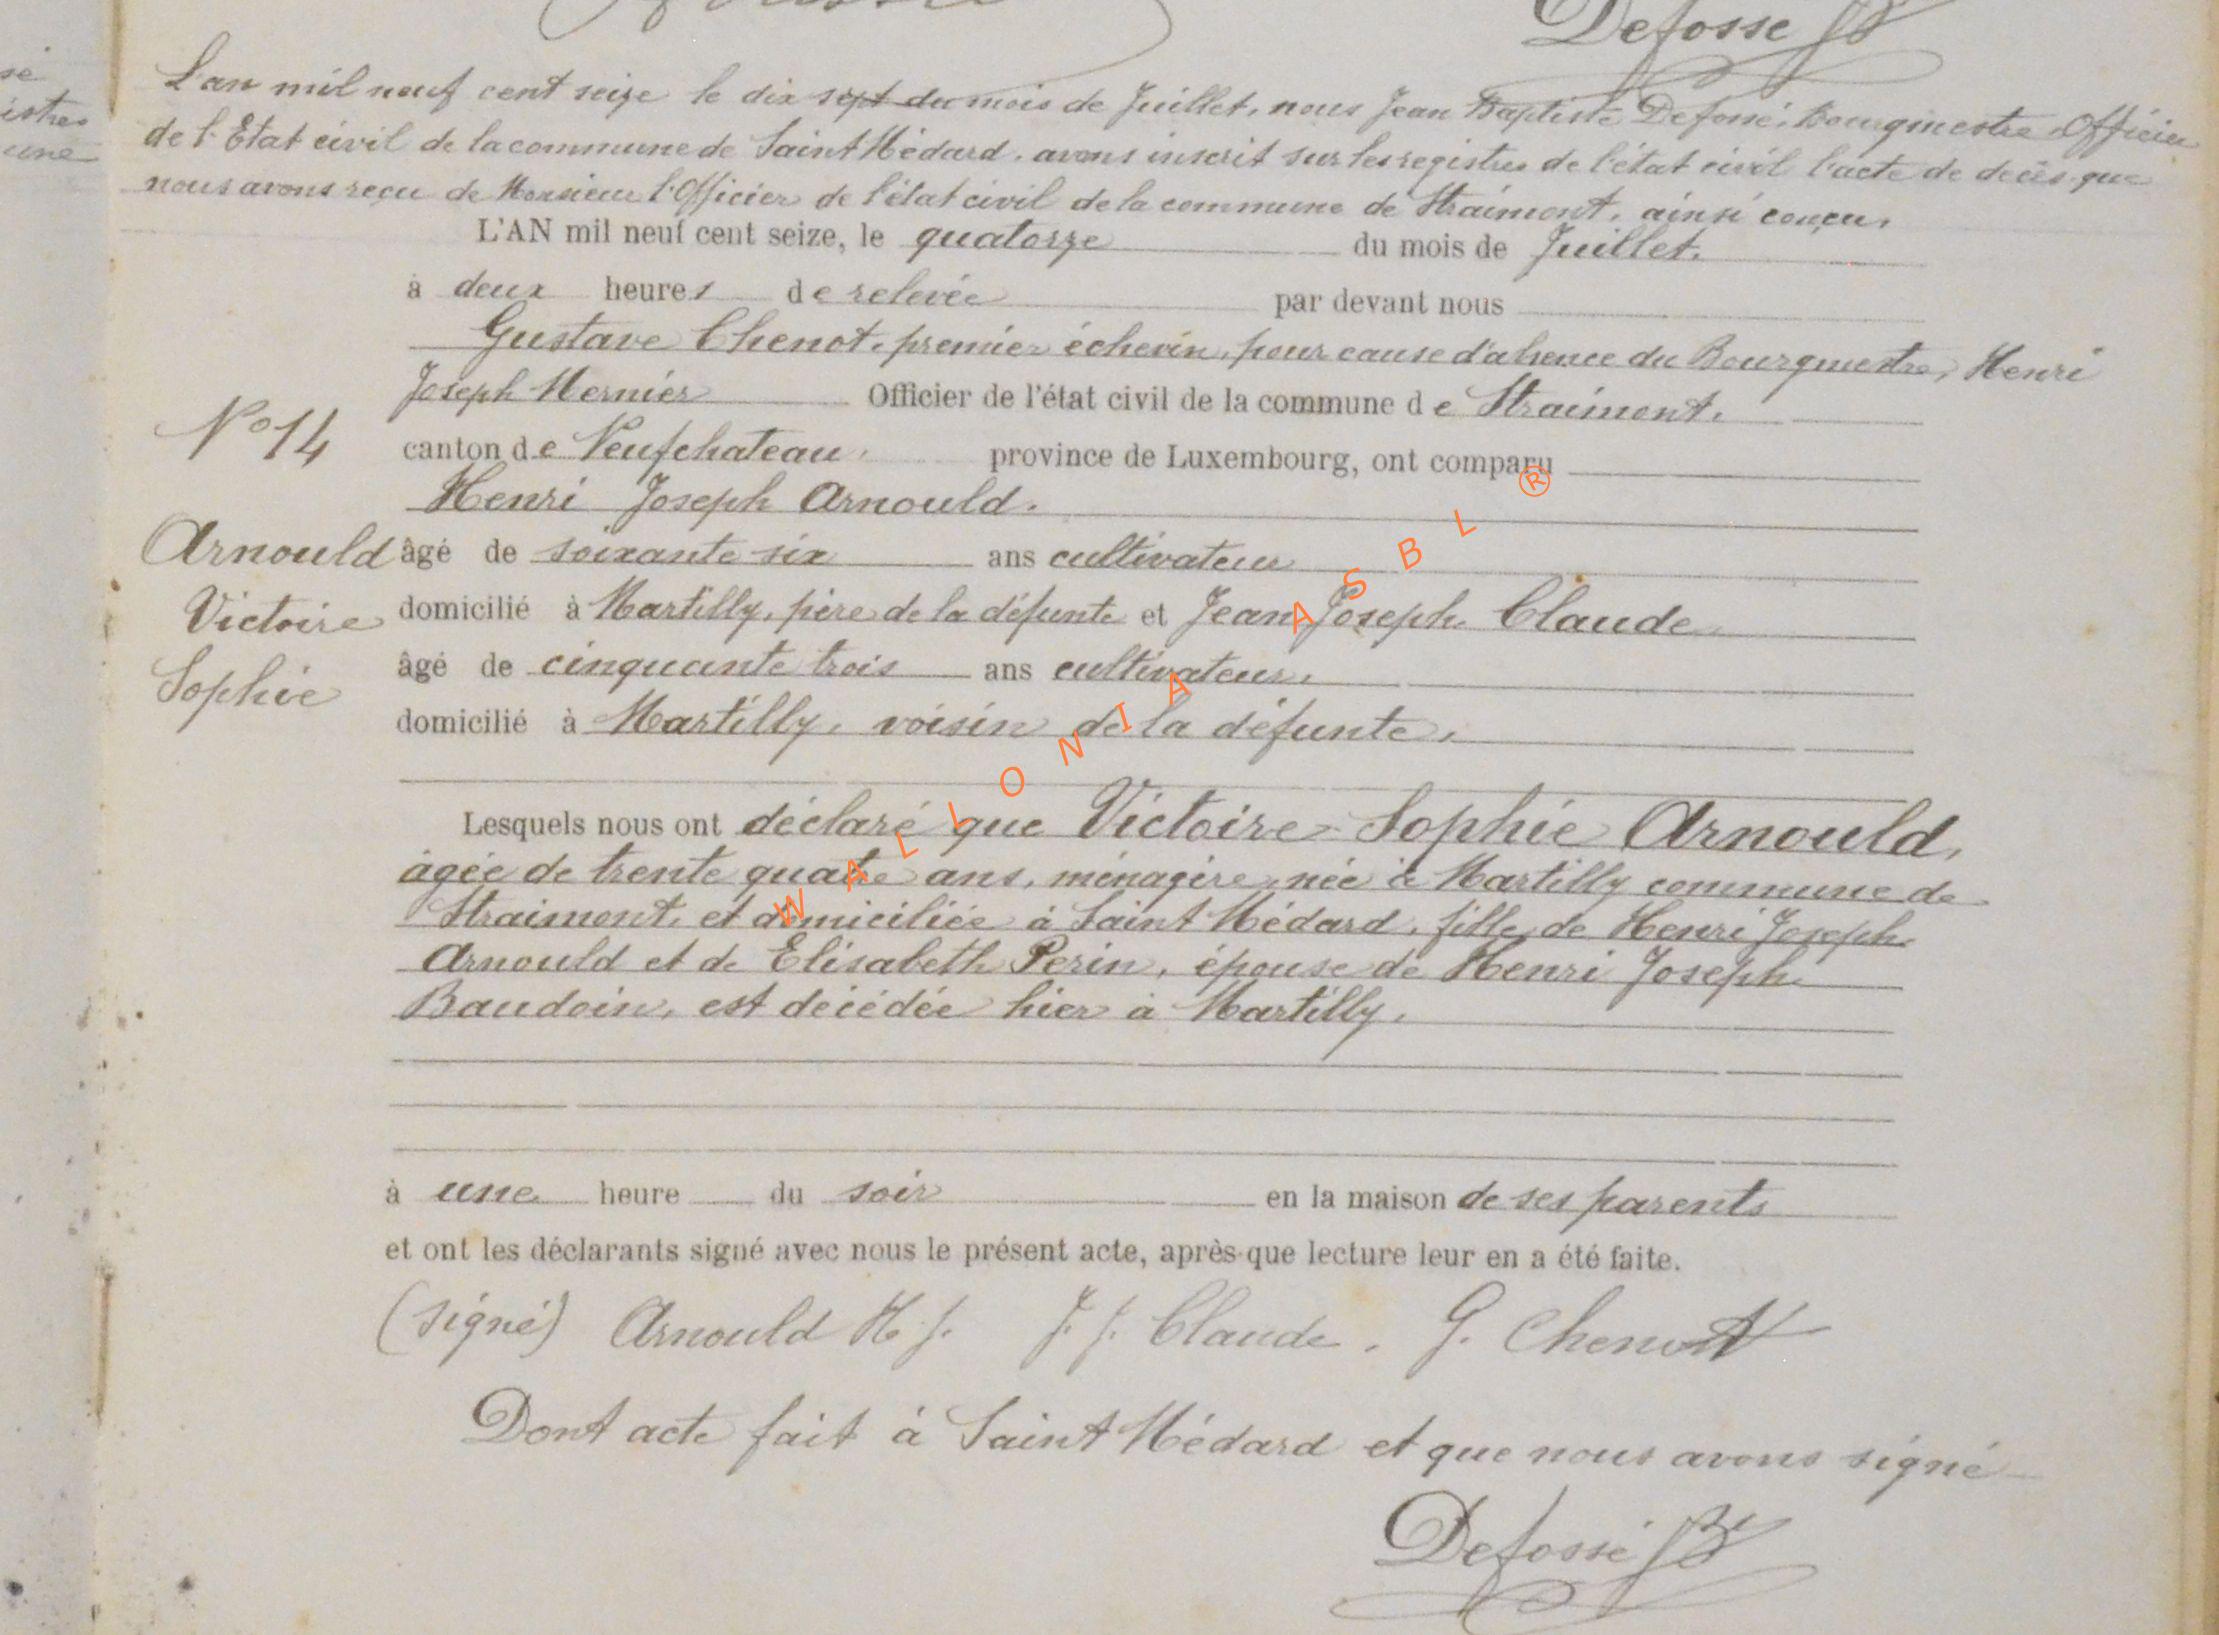 Defossé JB
sé
istres
une
L'an mil neuf cent seize le dix sept du mois de Juillet, nous Jean Baptiste Defossé, Bourgmestre Officier
de l'Etat civil de la commune de Saint Médard, avons inscrit sur les registres de l'état civil l'acte de décès que
nous avons reçu de Monsieur l'Officier de l'état civil de la commune de Straimont, ainsi conçu,
L'AN mil neuf cent seize, le quatorze du mois de Juillet.
à deux heures de relevée par devant nous
Gustave Chenot, premier échevin, pour cause d'absence du Bourgmestre, Henri
Joseph Mernier Officier de l'état civil de la commune de Straimont.
N° 14
canton de Neufchateau, province de Luxembourg, ont comparu
Henri Joseph Arnould.
Arnould
Victoire
Sophie
âgé de soixante six ans cultivateur
domicilié à Martilly, père de la défunte et Jean Joseph Claude
âgé de cinquante trois ans cultivateur,
domicilié à Martilly, voisin de la défunte,
Lesquels nous ont déclaré que Victoire Sophie Arnould,
âgée de trente quatre ans, ménagère, née à Martilly commune de
Straimont, et domiciliée à Saint Médard, fille de Henri Joseph
Arnould et de Elisabeth Perin, épouse de Henri Joseph
Baudoin, est décédée hier à Martilly,
à une heure du soir en la maison de ses parents
et ont les déclarants signé avec nous le présent acte, après que lecture leur en a été faite.
(signé) Arnould H. J. J. J. Claude. G. Chenot
Dont acte fait à Saint Médard et que nous avons signé
Defossé JB
WALLONIA ASBL ®